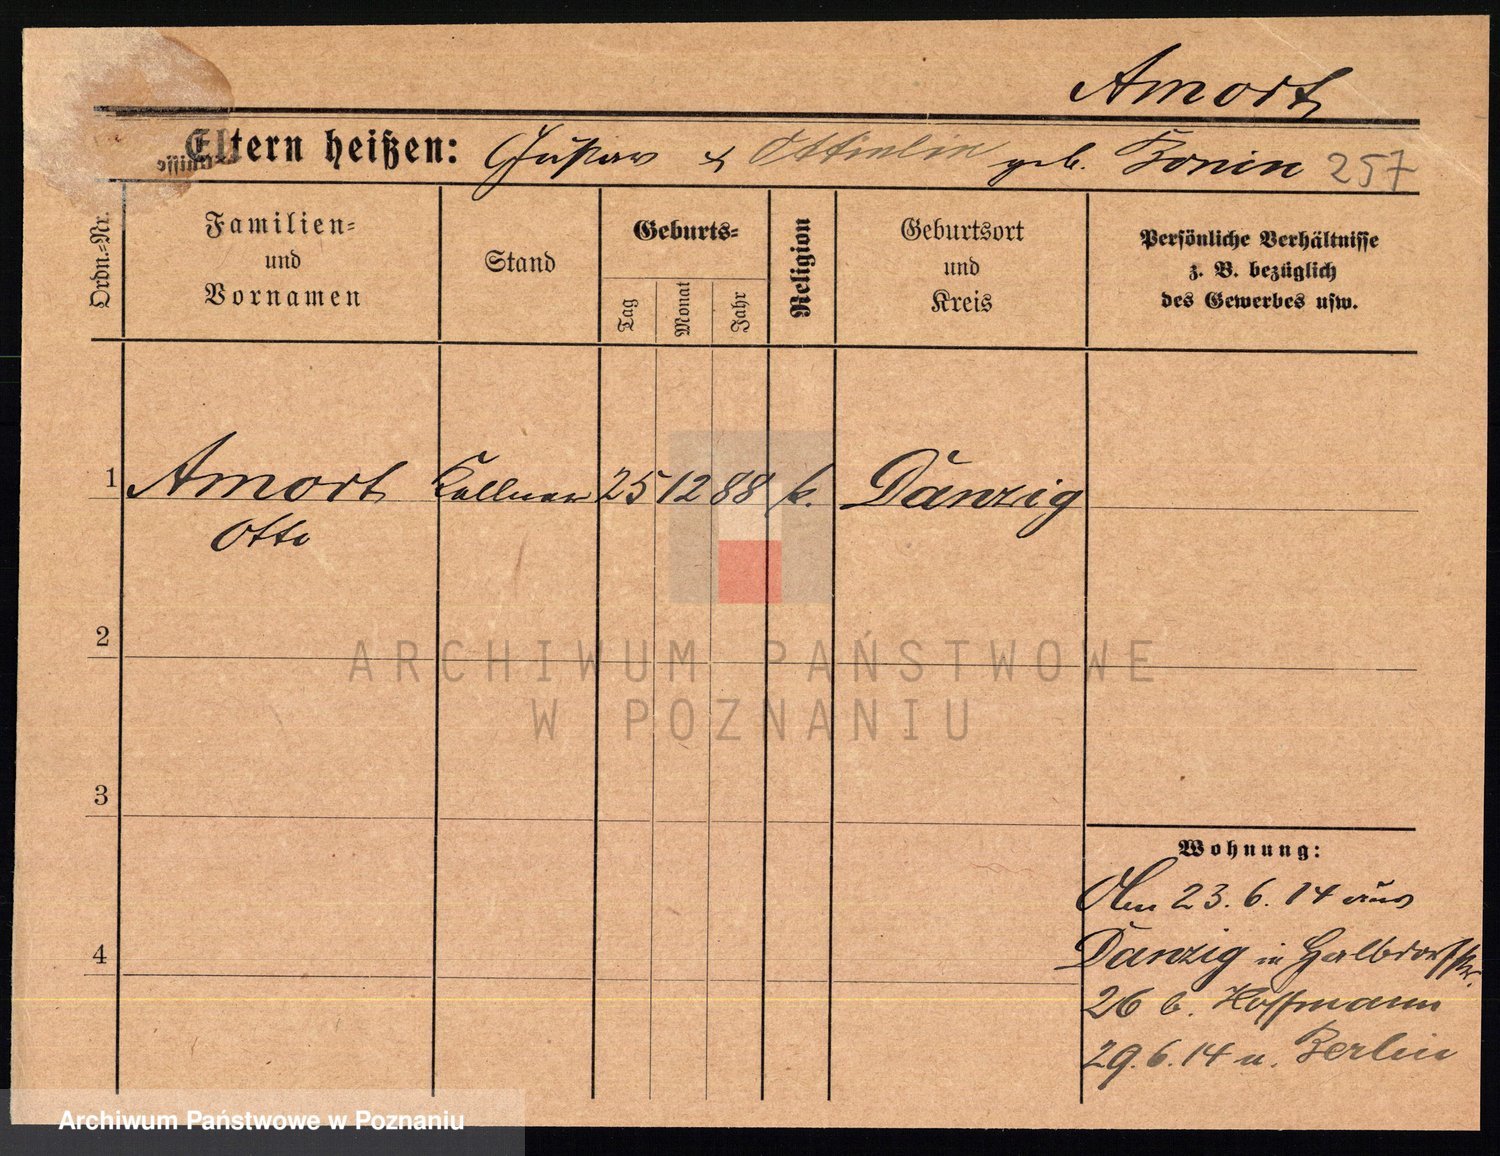 Amort
Eltern heißen: Gustav & Ottilie geb. Bonin 257
Ordn.-Nr.
Familien-
und
Vornamen
Stand
Geburts-
Tag
Monat
Jahr
Religion
Geburtsort
und
Kreis
Persönliche Verhältnisse
z. B. bezüglich
des Gewerbes usw.
1 Amort Kellner 25 12 88 k. Danzig
Otto
2
ARCHIWUM PAŃSTWOWE
W POZNANIU
3
Wohnung:
Am 23. 6. 14 aus
4 Danzig in Halbdorfstr.
26 b. Hoffmann
29. 6. 14 n. Berlin
Archiwum Państwowe w Poznaniu